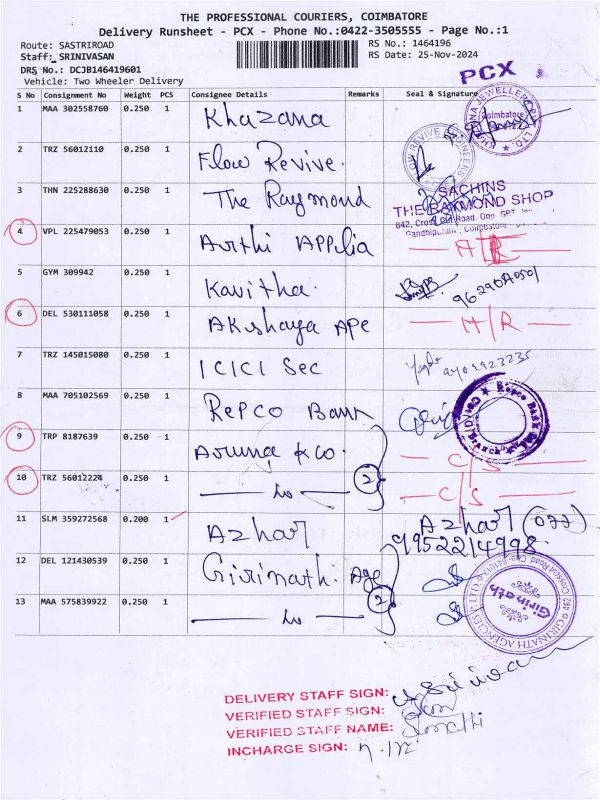 THE PROFESSIONAL COURIERS, COIMBATORE
Delivery Runsheet - PCX - Phone No.:0422-3505555 - Page No.:1
Route: SASTRIROAD
RS No.: 1464196
Staff: SRINIVASAN
RS Date: 25-Nov-2024
DRS No.: DCJB146419601
Vehicle: Two Wheeler Delivery
PCX
S No Consignment No Weight PCS Consignee Details Remarks Seal & Signature
1 MAA 302558760 0.250 1 Khazana
KHAZANA JEWELLERY LTD. Coimbatore
2 TRZ 56012110 0.250 1 Flow Revive.
FLOW REVIVE ENGINEERS
3 THN 225288630 0.250 1 The Raymond
SACHINS
THE RAYMOND SHOP
842, Cross Cut Road, Opp. GPT
Gandhipuram, Coimbatore
4 VPL 225479053 0.250 1 Arthi APPlia
5 GYM 309942 0.250 1 Kavitha.
6 DEL 530111058 0.250 1 AKshaya APe H/R
7 TRZ 145015080 0.250 1 ICICI Sec
8 MAA 705102569 0.250 1 RePCO Bank
Repco Bank
Branch
9 TRP 8187639 0.250 1 Aruna & Co. C/S
10 TRZ 56012224 0.250 1 2 C/S
11 SLM 359272568 0.200 1 Azhar Azhar
9952214998
12 DEL 121430539 0.250 1 Girinath. Age
13 MAA 575839922 0.250 1 2
GIRINATH AGENCIES P LTD
Girinath
DELIVERY STAFF SIGN:
VERIFIED STAFF SIGN:
VERIFIED STAFF NAME:
INCHARGE SIGN: